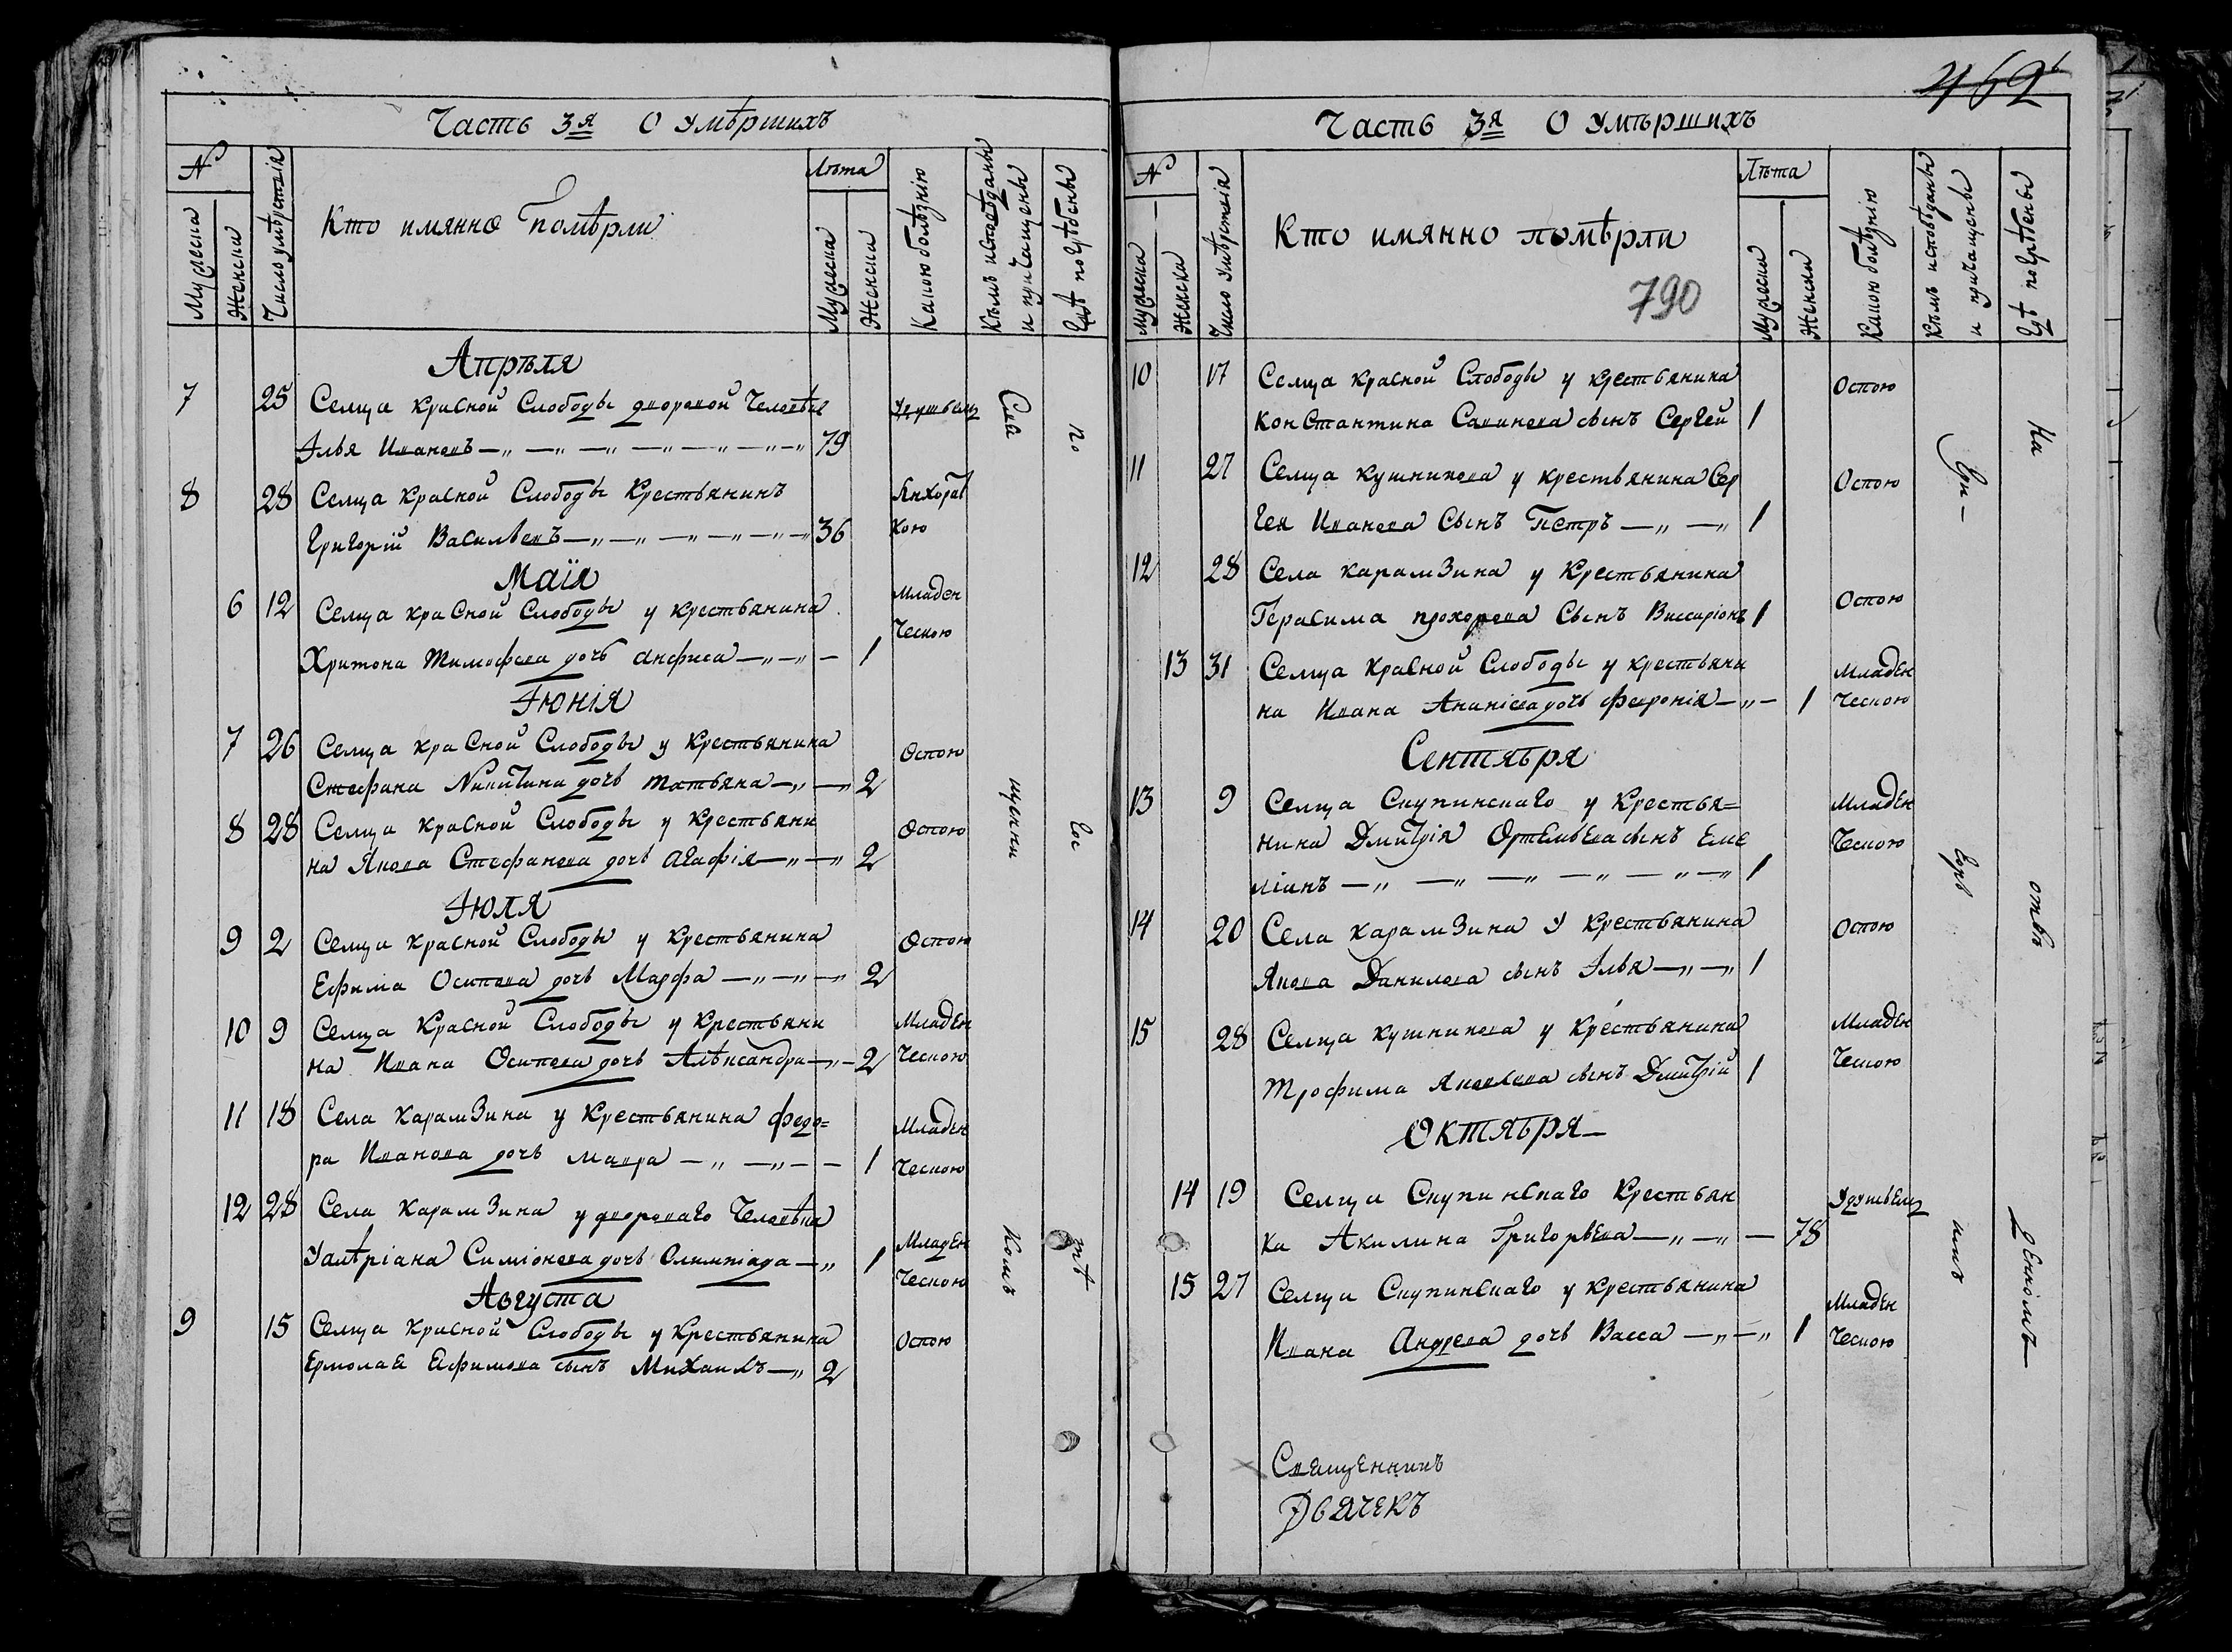 Часть 3я О умѣршихъ
N
Мужеска
Женска
Число умѣртвія
Кто имянно Помѣрли
Лѣта
Мужеска
Женска
Какою болѣзнію
Кѣмъ исповѣданы
и причащены
Гдѣ погрѣбены
Апрѣля
7 25 Селца Красной Слободы дворовой Человѣк
Илья Ивановъ 79
8 28 Селца Красной Слободы Крестьянинъ
Григорій Васильевъ 36
Маія
6 12 Селца Красной Слободы у крестьянина Младен
Харитона Тимофеева дочь Анфиса 1 ческою
Іюнія
7 26 Селца Красной Слободы у Крестьянина Оспою
Стефана Никитина дочь татьяна 2
8 28 Селца Красной Слободы у Крестьяни Оспою
на Якова Стефанова дочь Агафія 2
Іюля
9 2 Селца Красной Слободы у Крестьянина Оспою
Ефима Осипова дочь Марфа 2
10 9 Селца Красной Слободы у Крестьяни Младен
на Ивана Осипова дочь Алѣксандра 2 Ческою
11 18 Села Карамзина у Крестьянина Федо= Младен
ра Иванова дочь мавра 1 Ческою
12 28 Села Карамзина у двороваго Человѣка Младен
Симіонова дочь Олимпіада 1 Ческою
Августа
9 15 Селца Красной Слободы у Крестьянина Оспою
Ермолая Ефимова сынъ Михаилъ 2
по
Часть 3я О умѣршихъ
N
Мужеска
Женска
Число умѣртвія
Кто имянно помѣрли
790
Лѣта
Мужеска
Женски
Какою болѣзнію
Кѣмъ исповѣданы
и причащены
Гдѣ погрѣбены
10 17 Селца Красной Слободы у крестьянина Оспою
Константина Савинова сынъ Сергей 1
11 27 Селца Кушникова у крестьянина Сер Оспою
гея Иванова Сынъ Петръ 1
12 28 Села Карамзина у Крестьянина Оспою
Герасима прохорова Сынъ Виссаріонъ 1
13 31 Селца Красной Слободы у крестьяни Младен
на Ивана Ананіева дочь Февронія 1 Ческою
Сентября
13 9 Селца Скупинскаго у Крестья= Младен
нина Дмитрія Ортемьева сынъ Еме Ческою
ліанъ 1
14 20 Села Карамзина у Крестьянина Оспою
Якова Данилова сынъ Илья 1
15 28 Селца Кушникова у Крестьянина Младен
Трофима Яковлева сынъ Дмитрій 1 Ческою
Октября
14 19 Селца Скупинскаго Крестьян
ка Акилина Григорьева 78
15 27 Селца Скупинскаго у Крестьянина Младен
Ивана Андреева дочь Васса 1 Ческою
Священникъ
Дьячекъ